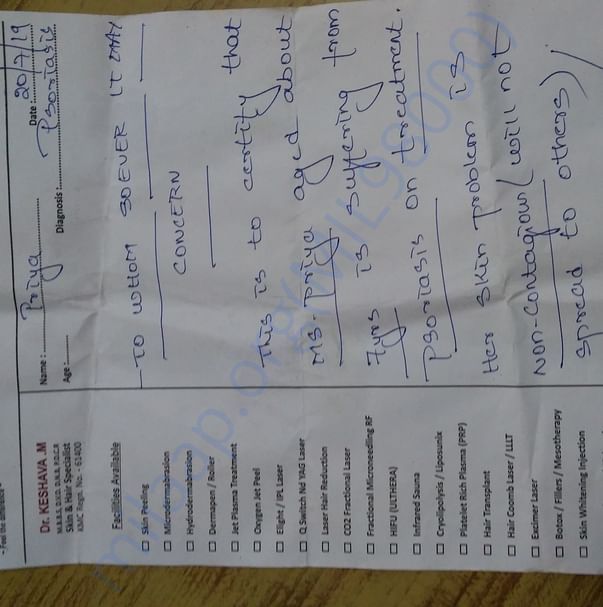 - Feel the difference -
Dr. KESHAVA .M
M.B.B.S, D.V.D, D.N.B, P.D.C.R
Skin & Hair Specialist
KMC Regn. No - 63400
Facilities Available
Skin Peeling
Microdermabrasion
Hydrodermabrasion
Dermapen / Roller
Jet Plasma Treatment
Oxygen Jet Peel
Elight / IPL Laser
Q Switch Nd YAG Laser
Laser Hair Reduction
CO2 Fractional Laser
Fractional Microneedling RF
HIFU (ULTHERA)
Infrared Sauna
Cryolipolysis / Liposunix
Platelet Rich Plasma (PRP)
Hair Transplant
Hair Coomb Laser / LLLT
Excimer Laser
Botox / Fillers / Mesotherapy
Skin Whitening Injection
Name : Priya Date : 20/7/19
Age : Diagnosis : Psoriasis
TO WHOM SO EVER IT MAY
CONCERN
This is to certify that
MS. Priya aged about
7yrs is suffering from
Psoriasis on treatment.
Her skin problem is
Non-contagious (will not
spread to others)